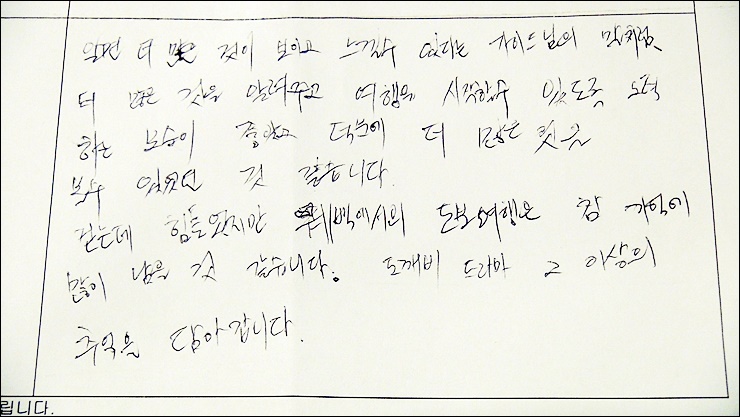 알면 더 많은 것이 보이고 느낄수 있다는 가이드님의 말처럼
더 많은 것을 알려주고 여행의 시작할수 있도록 노력
하는 모습이 좋았고 덕분에 더 많은 것을
볼수 있었던 것 같습니다.
걷는데 힘들었지만 퀘벡에서의 도보여행은 참 기억에
많이 남을 것 같습니다. 도깨비 드라마 그 이상의
추억을 담아갑니다.
립니다.